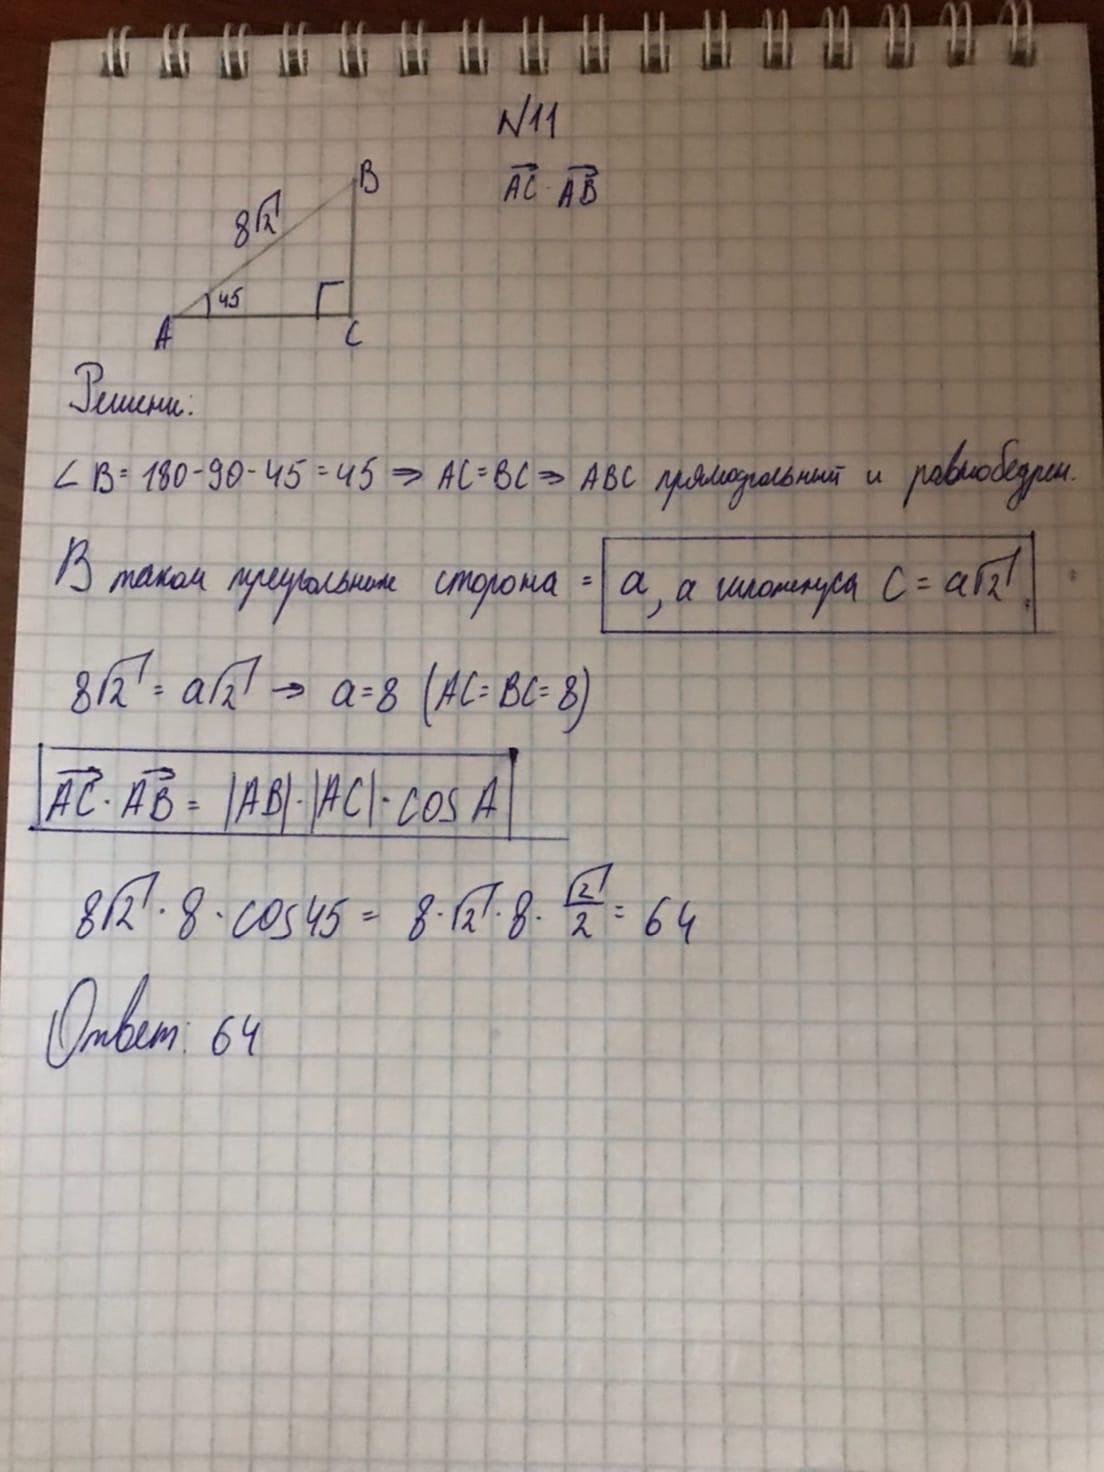 N11
B
8√2
AC · AB
45
A
C
Решени:
∠B=180-90-45=45 ⇒ AC=BC ⇒ ABC прямоугольный и равнобедрен.
В таком треугольнике сторона = a, а гипотенуса C = a√2.
8√2 = a√2 → a=8 (AC=BC=8)
AC · AB = |AB| · |AC| · cos A
8√2 · 8 · cos45 = 8·√2·8·√2/2 = 64
Ответ: 64